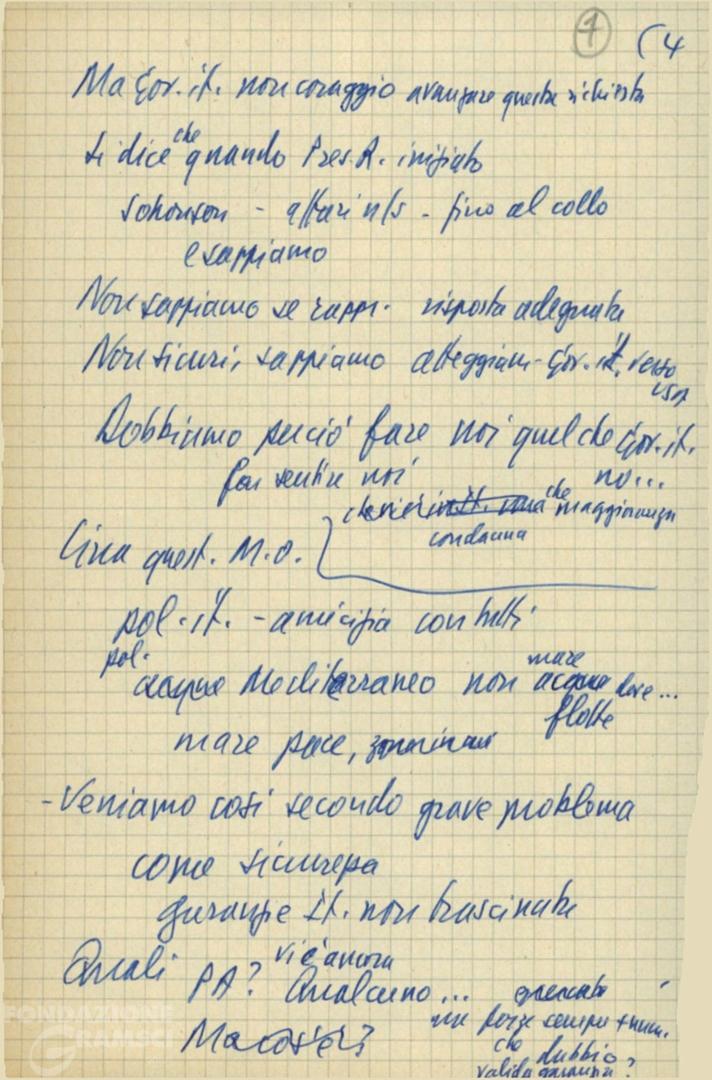 1 (4
Ma Gov. it. non coraggio avanzare questa richiesta
si dice che quando Pres. R. iniziato
Johonson - affari n/s - fino al collo
e sappiamo
Non sappiamo se rappr. risposta adeguata
Non sicuri, sappiamo atteggiam- Gov. it. verso
USA
Dobbiamo perciò fare noi quel che Gov. it.
far sentire noi no...
che maggioranza
condanna
Circa quest. M.O.
pol. it. - amicizia con tutti
pol.
acque Mediterraneo non mare acque dove...
flotte
mare pace,
- Veniamo così secondo grave problema
come sicurezza
garanzie It. non trascinata
Quali PA? vi è ancora
Qualcuno...
ma forze sempre + num.
che dubbio
valida garanzia?
Ma così è?
FONDAZIONE
GRAMSCI